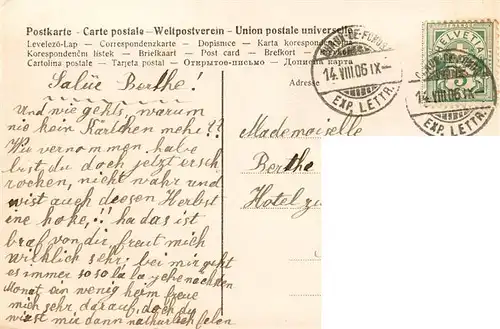 Postkarte - Carte postale - Weltpostverein - Union postale universelle
Levelező-Lap — Correspondenzkarte — Dopisnice — Karta korespondencyjna
Korespondenční listek — Briefkaart — Post card — Brefkort —
Cartolina postale — Tarjeta postal — Открытое письмо — Дописна карта
Adresse
14.VIII.06 IX—
EXP. LETTR.
HELVETIA
5
14.VIII.06 IX—
EXP. LETTR.
Salüe Berthe!
Und wie gehts, warum
nie kein Kärtchen mehr??
Wie vernommen habe
bist du doch jetzt ersch
rocken, nicht wahr und
wist auch diesen Herbst
ine hoke,!! ha das ist
braf von dir freut mich
wirklich sehr; bei mir geht
es immer so so la la, gehe nächsten
Monat ein wenig heim freue
mich sehr darauf, doch du
wirst mir dann natürlich felen
Mademoiselle
Berthe
Hotel zu